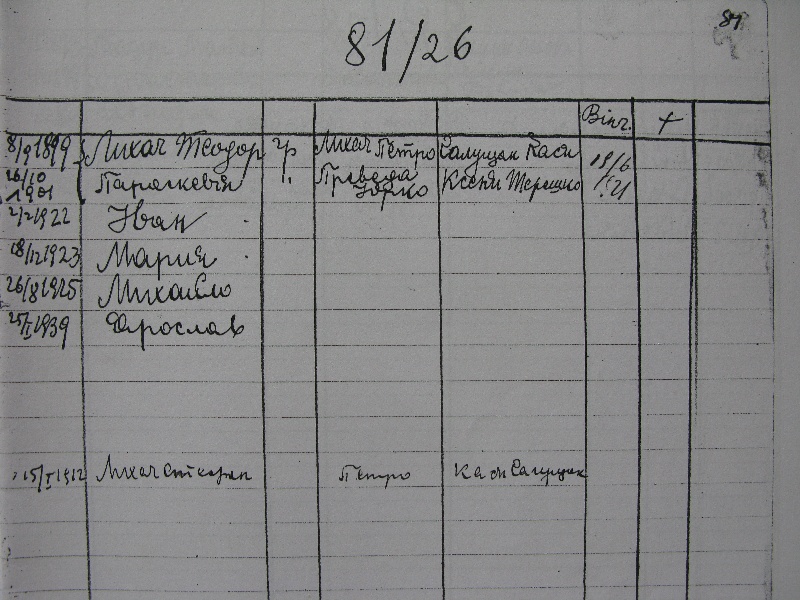 84
81/26
Вінч. +
8/9 1899 Лихач Теодор гр Лихач Петро Салущак Кася 19/6
26/10 1901 Параскевія Правега Юрко Ксеня Терешко 21
2/2 1922 Іван
18/12 1923 Мария
26/8 1925 Михайло
25/I 1939 Ярослав
15/I 1912 Лихач Петро Кася Салущак